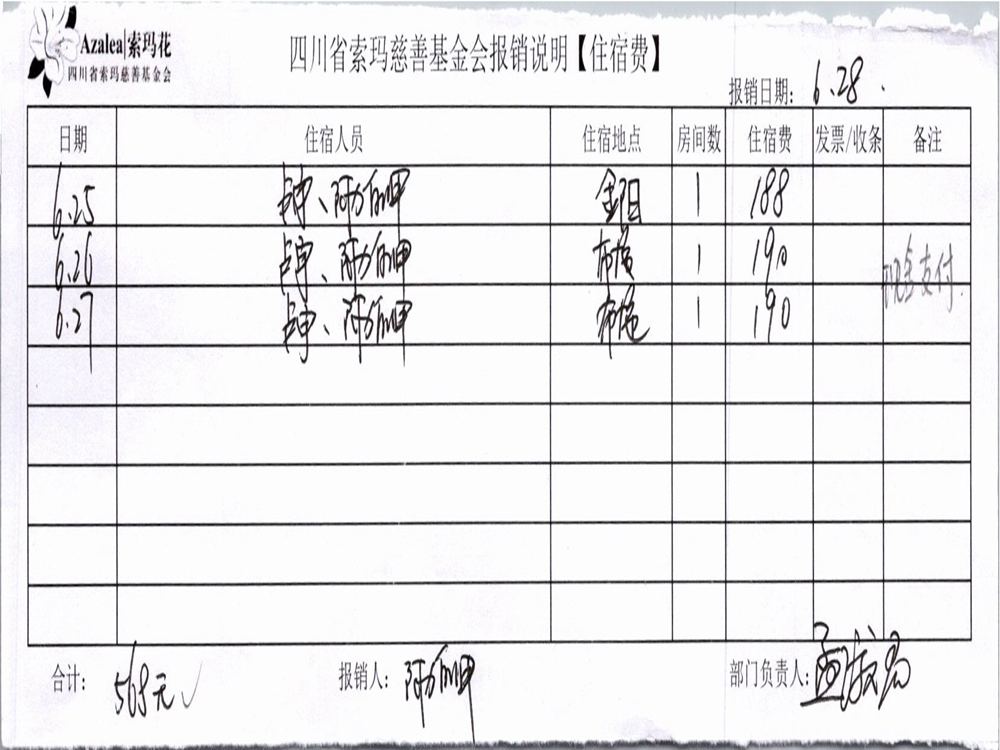 Azalea|索玛花
四川省索玛慈善基金会
四川省索玛慈善基金会报销说明【住宿费】
报销日期: 6.28.
日期 住宿人员 住宿地点 房间数 住宿费 发票/收条 备注
6.25 金阳 1 188
6.26 布拖 1 190
6.27 布拖 1 190
现金支付.
合计: 568元 ✓ 报销人: 部门负责人: